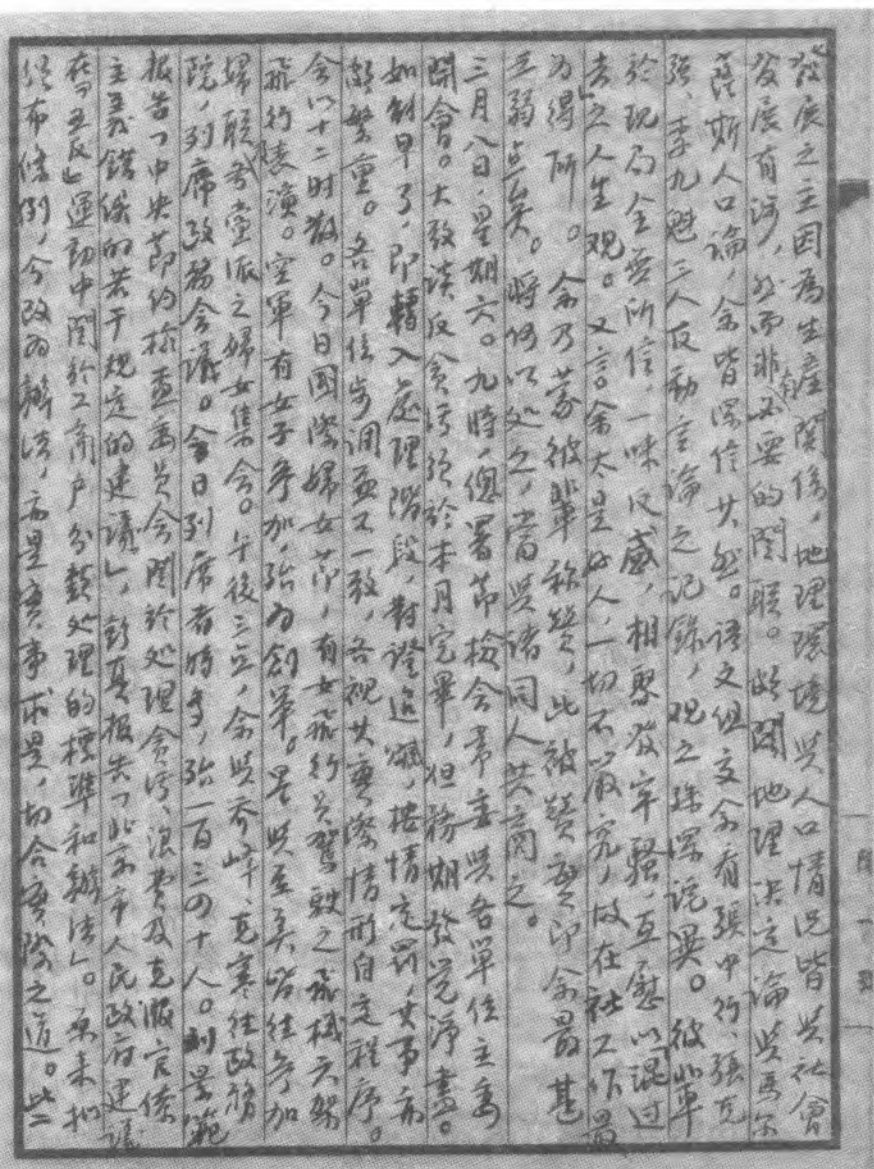 發展之主因為生產關係，地理環境與人口情況皆與社會
發展有涉，然而非有必要的關聯。頗聞地理決定論與馬尔
薩斯人口論，余皆深信其然。語文組交余看張中行、張克
强、李九魁三人反動言論之記録，觀之殊深詫異。彼輩
於現局全無所信，一味反感，相聚發牢騷，互慰以混过
去之人生观。又言余大是好人，一切不以嚴究，故在社工作最
为得所。余乃蒙彼輩称赞，此被赞實即余最甚
之弱点矣。將何以处之，當與諸同人共商之。
三月八日，星期六。九時，總署節檢会常委與各單位主委
開會。大致谈反貪污須於本月完畢，但務期發覺淨盡。
如能早了，即轉入處理階段，對證追贓，按情定罰，其事亦
頗繁重。各單位步調並不一致，各視其實際情形自定程序。
会以十二时散。今日國際婦女节，有女飛行员駕駛之飛機六架
飛行表演。空軍有女子參加，殆为創舉。墨與至美皆往參加
婦联各黨派之婦女集会。午後三点，余與乔峰、克寒往政務
院，列席政務会議。今日列席者特多，殆一百三四十人。刘景範
報告「中央節約檢查委员会關於处理貪污、浪費及克服官僚
主義錯誤的若干規定的建議」，彭真報告「北京市人民政府建議
在『五反』運動中關於工商户分類处理的標準和辦法」。原来拟
頒布條例，今改为辦法，亦是實事求是，切合實際之道。此二